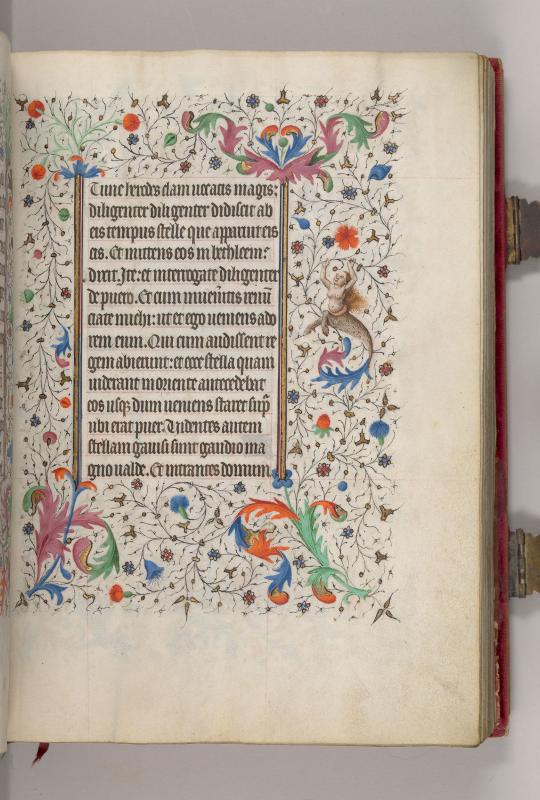 Tunc herodes clam vocatis magis:
diligenter diligenter didiscit ab
eis tempus stelle que apparuit eis
eis. Et mittens eos in bethleem:
dixit. Ite: et interrogate diligenter
de puero. Et cum inueneritis renũ
ciate michi: ut et ego veniens ado
rem eum. Qui cum audissent re
gem abierunt: et ecce stella quam
viderant in oriente antecedebat
eos usqꝫ dum veniens staret supͣ
ubi erat puer. Videntes autem
stellam gauisi sunt gaudio ma
gno valde. Et intrantes domum